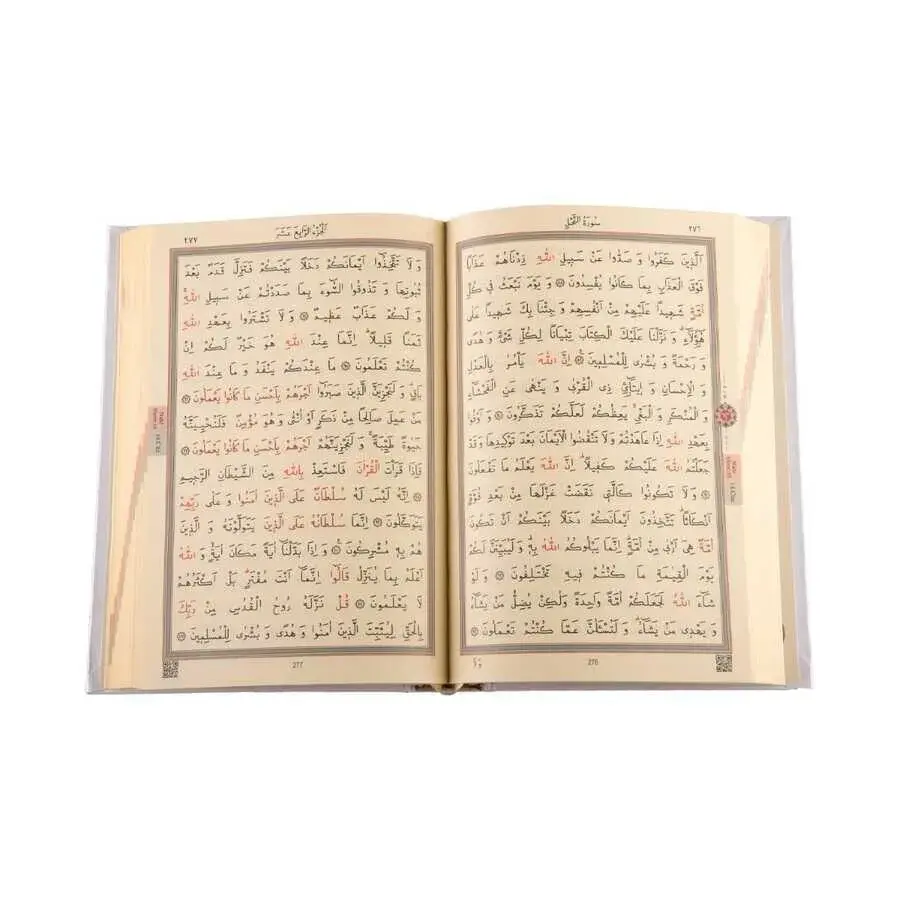 سُورَةُ النَّحْلِ
٢٧٦
اَلَّذِينَ كَفَرُوا وَ صَدُّوا عَنْ سَبِيلِ اللّٰهِ زِدْنَاهُمْ عَذَابًا
فَوْقَ الْعَذَابِ بِمَا كَانُوا يُفْسِدُونَ ۝ وَ يَوْمَ نَبْعَثُ فِي كُلِّ
اُمَّةٍ شَهِيدًا عَلَيْهِمْ مِنْ اَنْفُسِهِمْ وَ جِئْنَا بِكَ شَهِيدًا عَلٰى
هٰٓؤُلَٓاءِ وَ نَزَّلْنَا عَلَيْكَ الْكِتَابَ تِبْيَانًا لِكُلِّ شَيْءٍ وَ هُدًى
وَ رَحْمَةً وَ بُشْرٰى لِلْمُسْلِمِينَ ۝ اِنَّ اللّٰهَ يَأْمُرُ بِالْعَدْلِ
وَ الْاِحْسَانِ وَ اِيتَٓائِ ذِي الْقُرْبٰى وَ يَنْهٰى عَنِ الْفَحْشَٓاءِ
وَ الْمُنْكَرِ وَ الْبَغْيِ يَعِظُكُمْ لَعَلَّكُمْ تَذَكَّرُونَ ۝ وَ اَوْفُوا
بِعَهْدِ اللّٰهِ اِذَا عَاهَدْتُمْ وَ لَا تَنْقُضُوا الْاَيْمَانَ بَعْدَ تَوْكِيدِهَا وَ قَدْ
جَعَلْتُمُ اللّٰهَ عَلَيْكُمْ كَفِيلًا اِنَّ اللّٰهَ يَعْلَمُ مَا تَفْعَلُونَ
۝ وَ لَا تَكُونُوا كَالَّتِي نَقَضَتْ غَزْلَهَا مِنْ بَعْدِ قُوَّةٍ
اَنْكَاثًا تَتَّخِذُونَ اَيْمَانَكُمْ دَخَلًا بَيْنَكُمْ اَنْ تَكُونَ
اُمَّةٌ هِيَ اَرْبٰى مِنْ اُمَّةٍ اِنَّمَا يَبْلُوكُمُ اللّٰهُ بِهِ وَ لَيُبَيِّنَنَّ لَكُمْ
يَوْمَ الْقِيٰمَةِ مَا كُنْتُمْ فِيهِ تَخْتَلِفُونَ ۝ وَ لَوْ
شَٓاءَ اللّٰهُ لَجَعَلَكُمْ اُمَّةً وَاحِدَةً وَلٰكِنْ يُضِلُّ مَنْ يَشَٓاءُ
وَ يَهْدِي مَنْ يَشَٓاءُ وَ لَتُسْـَٔلُنَّ عَمَّا كُنْتُمْ تَعْمَلُونَ ۝
276
اَلْجُزْءُ الرَّابِعَ عَشَرَ
٢٧٧
وَ لَا تَتَّخِذُوا اَيْمَانَكُمْ دَخَلًا بَيْنَكُمْ فَتَزِلَّ قَدَمٌ بَعْدَ
ثُبُوتِهَا وَ تَذُوقُوا السُّٓوءَ بِمَا صَدَدْتُمْ عَنْ سَبِيلِ اللّٰهِ
وَ لَكُمْ عَذَابٌ عَظِيمٌ ۝ وَ لَا تَشْتَرُوا بِعَهْدِ اللّٰهِ
ثَمَنًا قَلِيلًا اِنَّمَا عِنْدَ اللّٰهِ هُوَ خَيْرٌ لَكُمْ اِنْ
كُنْتُمْ تَعْلَمُونَ ۝ مَا عِنْدَكُمْ يَنْفَدُ وَ مَا عِنْدَ اللّٰهِ
بَاقٍ وَ لَنَجْزِيَنَّ الَّذِينَ صَبَرُٓوا اَجْرَهُمْ بِاَحْسَنِ مَا كَانُوا يَعْمَلُونَ ۝
مَنْ عَمِلَ صَالِحًا مِنْ ذَكَرٍ اَوْ اُنْثٰى وَ هُوَ مُؤْمِنٌ فَلَنُحْيِيَنَّهُ
حَيٰوةً طَيِّبَةً وَ لَنَجْزِيَنَّهُمْ اَجْرَهُمْ بِاَحْسَنِ مَا كَانُوا يَعْمَلُونَ ۝
فَاِذَا قَرَأْتَ الْقُرْاٰنَ فَاسْتَعِذْ بِاللّٰهِ مِنَ الشَّيْطَانِ الرَّجِيمِ
۝ اِنَّهُ لَيْسَ لَهُ سُلْطَانٌ عَلَى الَّذِينَ اٰمَنُوا وَ عَلٰى رَبِّهِمْ
يَتَوَكَّلُونَ ۝ اِنَّمَا سُلْطَانُهُ عَلَى الَّذِينَ يَتَوَلَّوْنَهُ وَ الَّذِينَ
هُمْ بِهِ مُشْرِكُونَ ۝ وَ اِذَا بَدَّلْنَٓا اٰيَةً مَكَانَ اٰيَةٍ وَ اللّٰهُ
اَعْلَمُ بِمَا يُنَزِّلُ قَالُٓوا اِنَّمَٓا اَنْتَ مُفْتَرٍ بَلْ اَكْثَرُهُمْ
لَا يَعْلَمُونَ ۝ قُلْ نَزَّلَهُ رُوحُ الْقُدُسِ مِنْ رَبِّكَ
بِالْحَقِّ لِيُثَبِّتَ الَّذِينَ اٰمَنُوا وَ هُدًى وَ بُشْرٰى لِلْمُسْلِمِينَ ۝
277